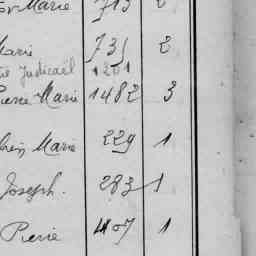 Marie 713 2
Marie 735 2
Judicaël 1201
Pierre Marie 1482 3
Marie 229 1
Joseph. 283 1
Pierre 407 1